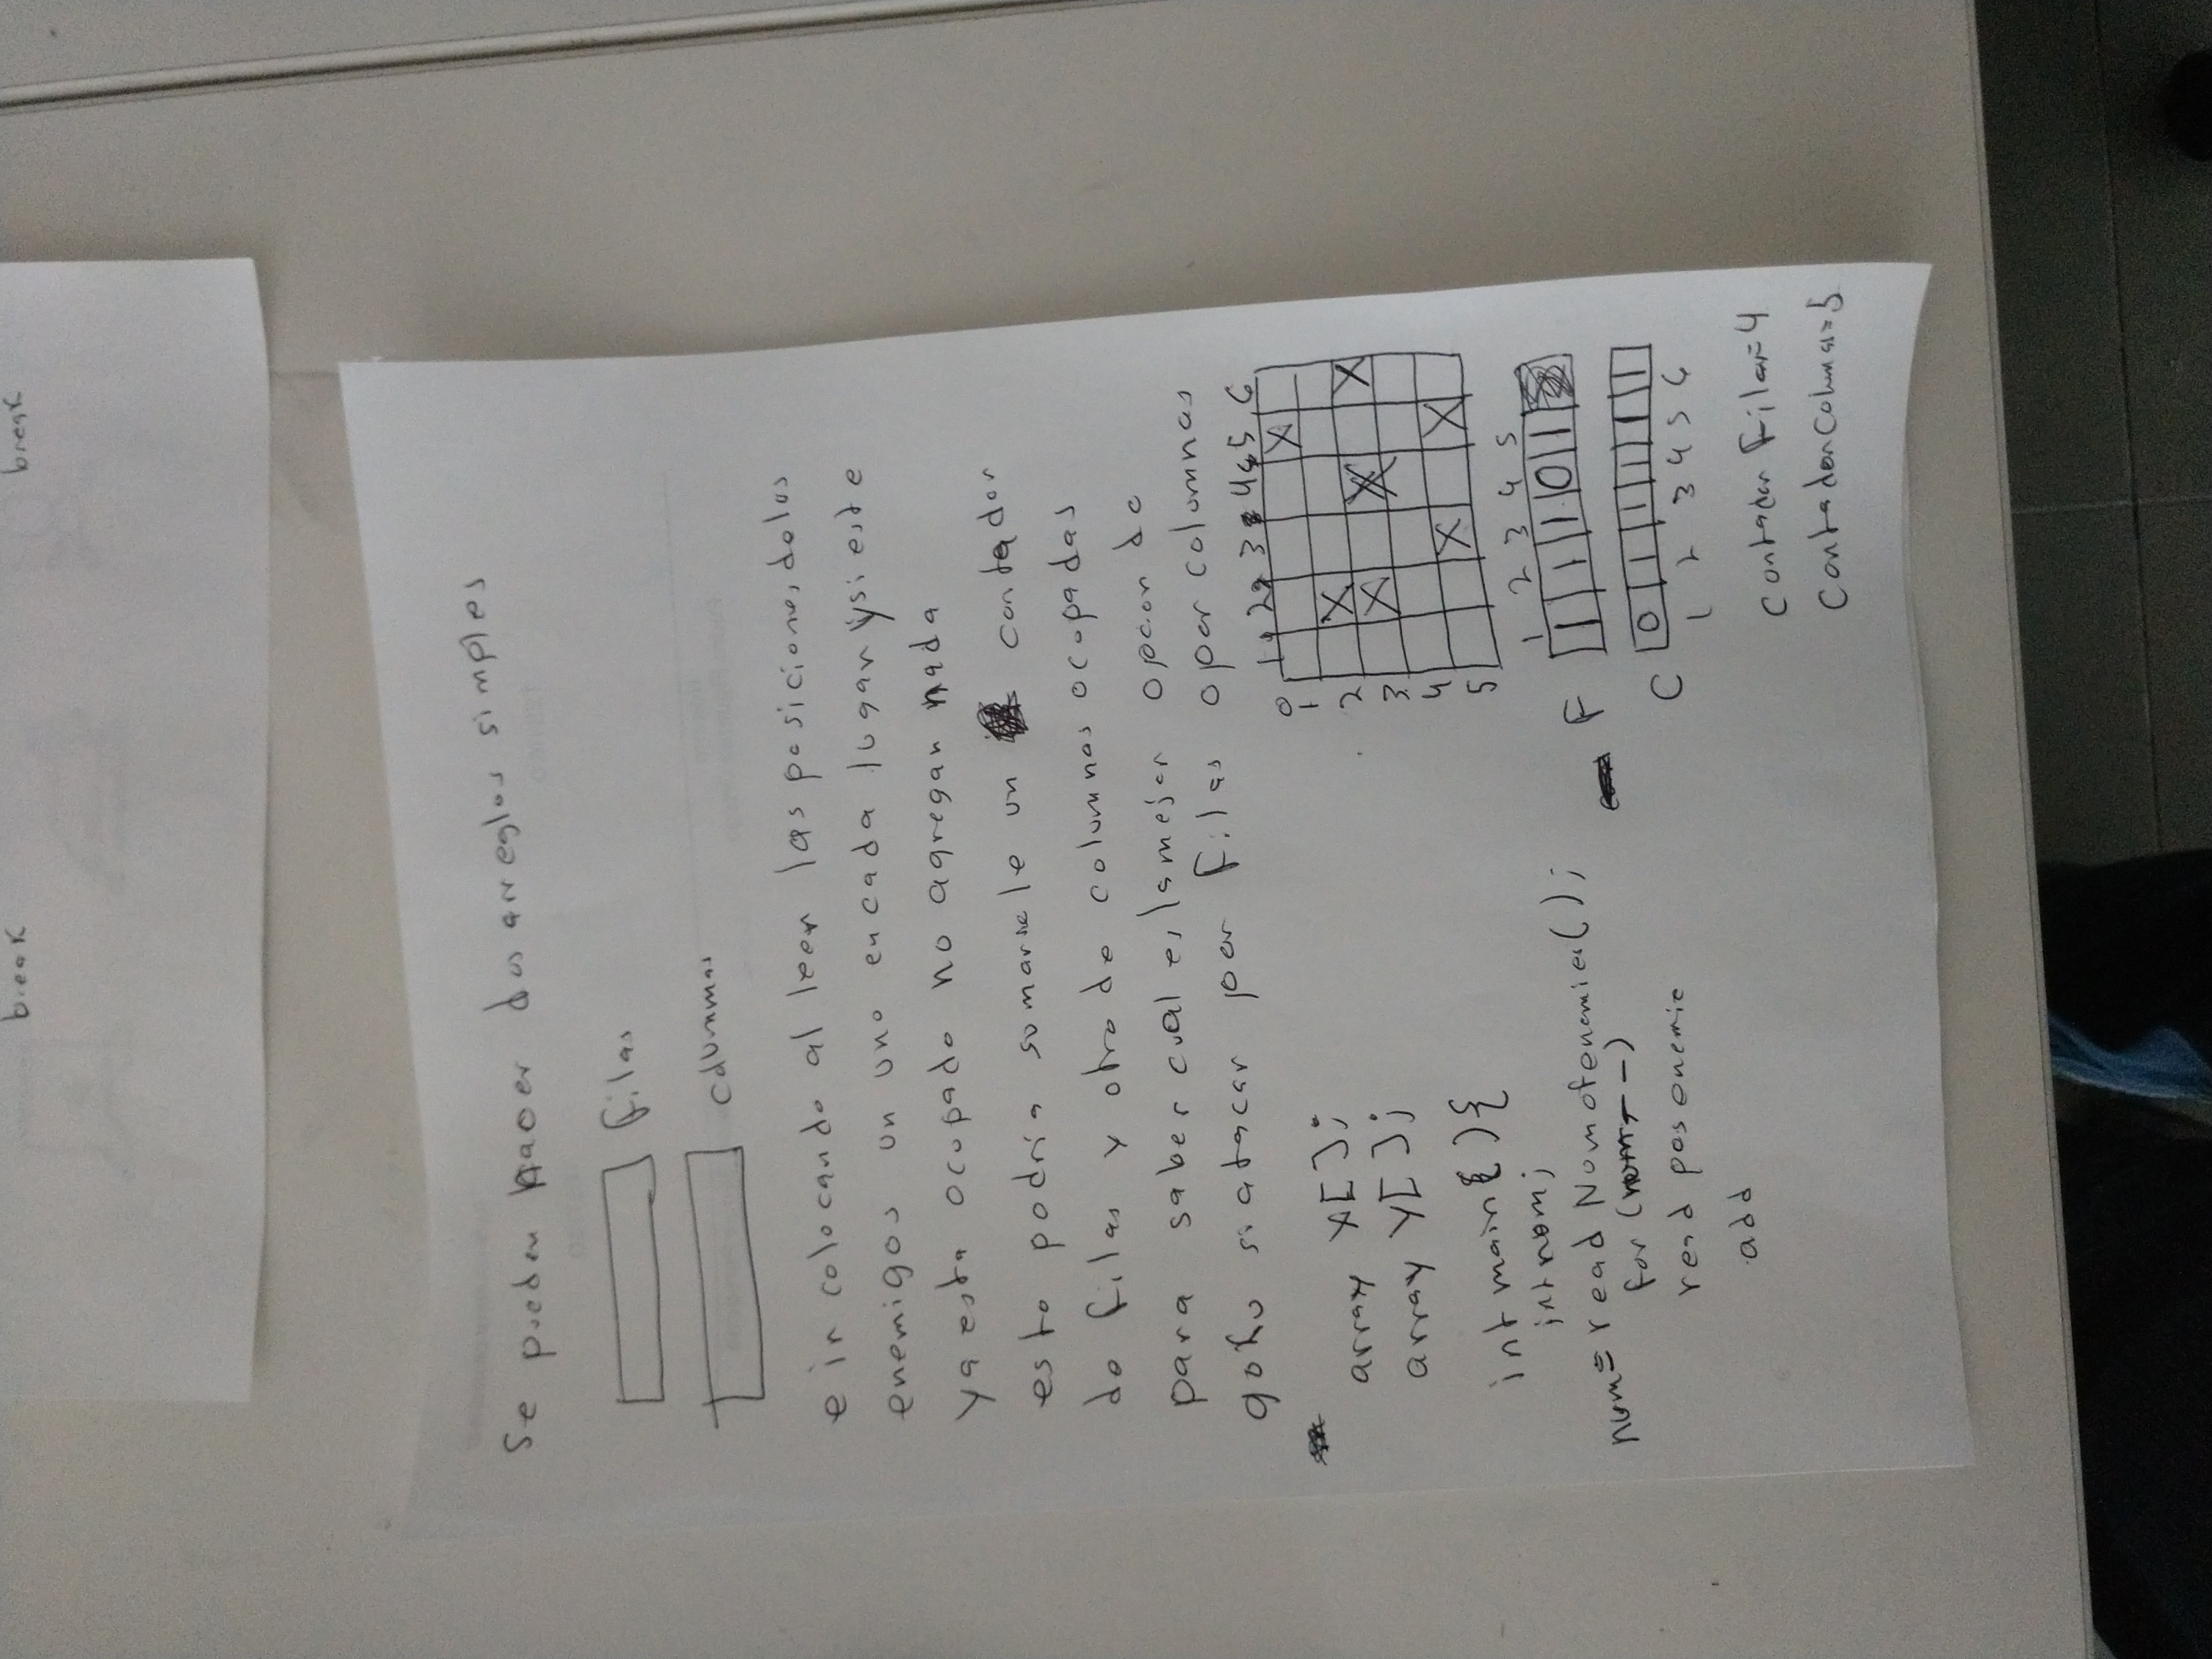 break break
Se pueden hacer dos arreglos simples
filas
columnas
e ir colocando al leer las posiciones de los
enemigos un uno en cada lugar y si este
ya esta ocupado no agregan nada
esto podria sumarsele un contador
de filas y otro de columnas ocupadas
para saber cual es la mejor opcion de
goku si atacar por filas o por columnas
array X[ ];
array Y[ ];
int main( ){
int num;
num= read Numofenemies( );
for (num--)
read pos enemie
add
1 2 3 4 5 6
0
1
X
2
X X
3
X X
4
5
X X
1 2 3 4 5
F 1 1 1 0 1
C 0 1 1 1 1 1
1 2 3 4 5 6
Contador Filas=4
Contador Columnas=5